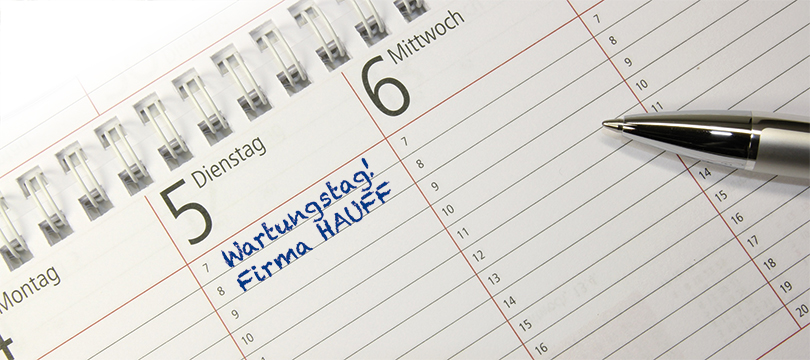 Montag
4
5 Dienstag
Wartungstag!
Firma HAUFF
7
8
9
10
6 Mittwoch
7
8
9
10
11
12
13
14
15
16
7
8
9
10
11
14
15
16
17
18
19
20